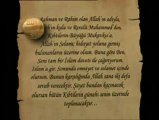 Rahman ve Rahim olan Allah'ın adıyla,
Allah'ın kulu ve Resulü Muhammed'den,
Kıbtîlerin Büyüğü Mukavkıs'a.
Allah'ın Selamı; hidayet yoluna girmiş
bulunanların üzerine olsun. Buna göre Ben,
Seni tam bir İslam daveti ile çağırıyorum.
İslam'a gir. Sonunda emniyet ve selamet içinde
olursun. Bunun karşılığında Allah sana iki defa
sevab verecektir. Şayet bundan kaçınacak
olursan bütün Kıbtîlerin günahı senin üzerinde
toplanacaktır...